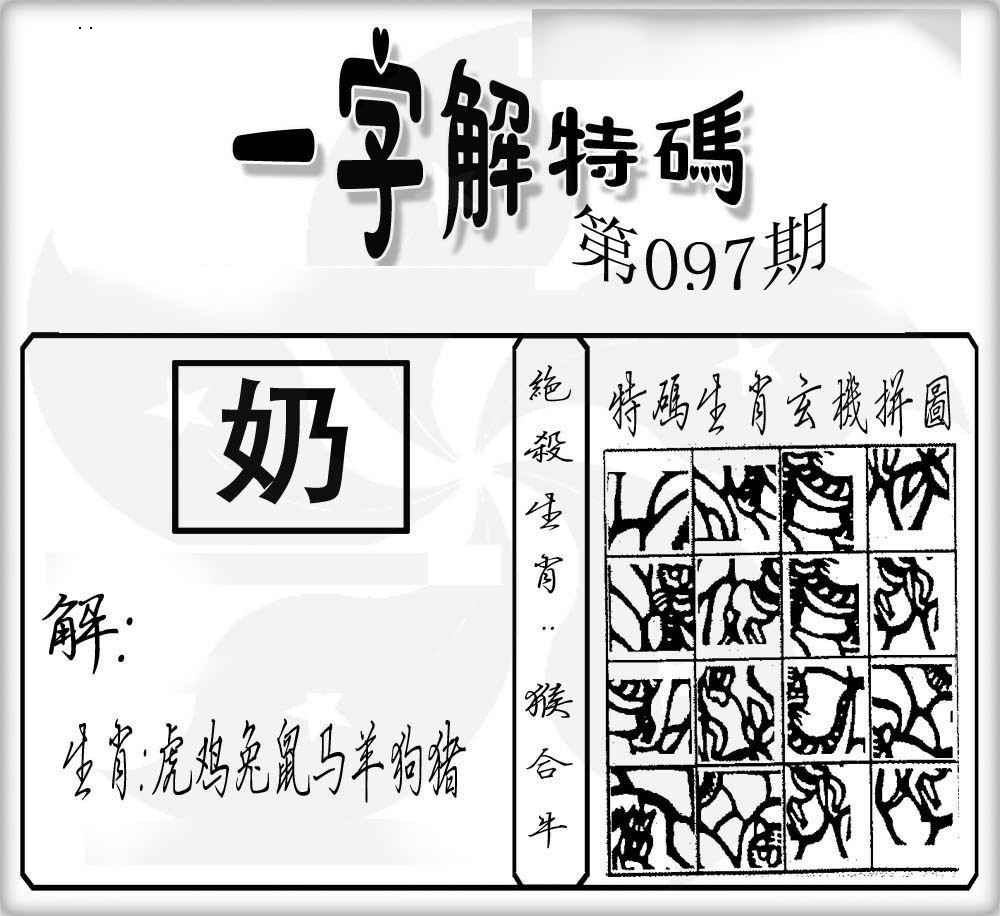 一字解特碼
第097期
奶
解:
生肖:虎鸡兔鼠马羊狗猪
絕殺生肖:猴合牛
特碼生肖玄機拼圖